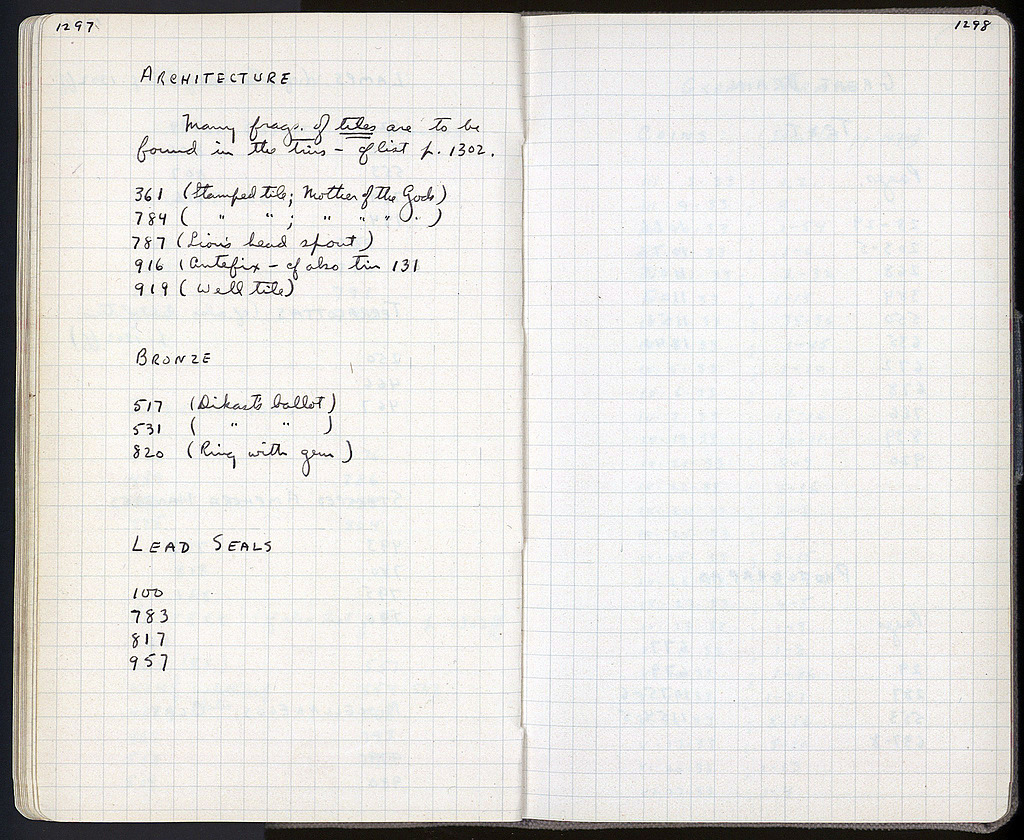 1297
ARCHITECTURE
Many frags. of tiles are to be
found in the tins – cf list p. 1302.
361 (Stamped tile; Mother of the Gods)
784 ( " " ; " " " " )
787 (Lion's head spout)
916 (Antefix – cf also tin 131
919 (Well tile)
BRONZE
517 (Dikast's ballot)
531 ( " " )
820 (Ring with gem)
LEAD SEALS
100
783
817
957
1298